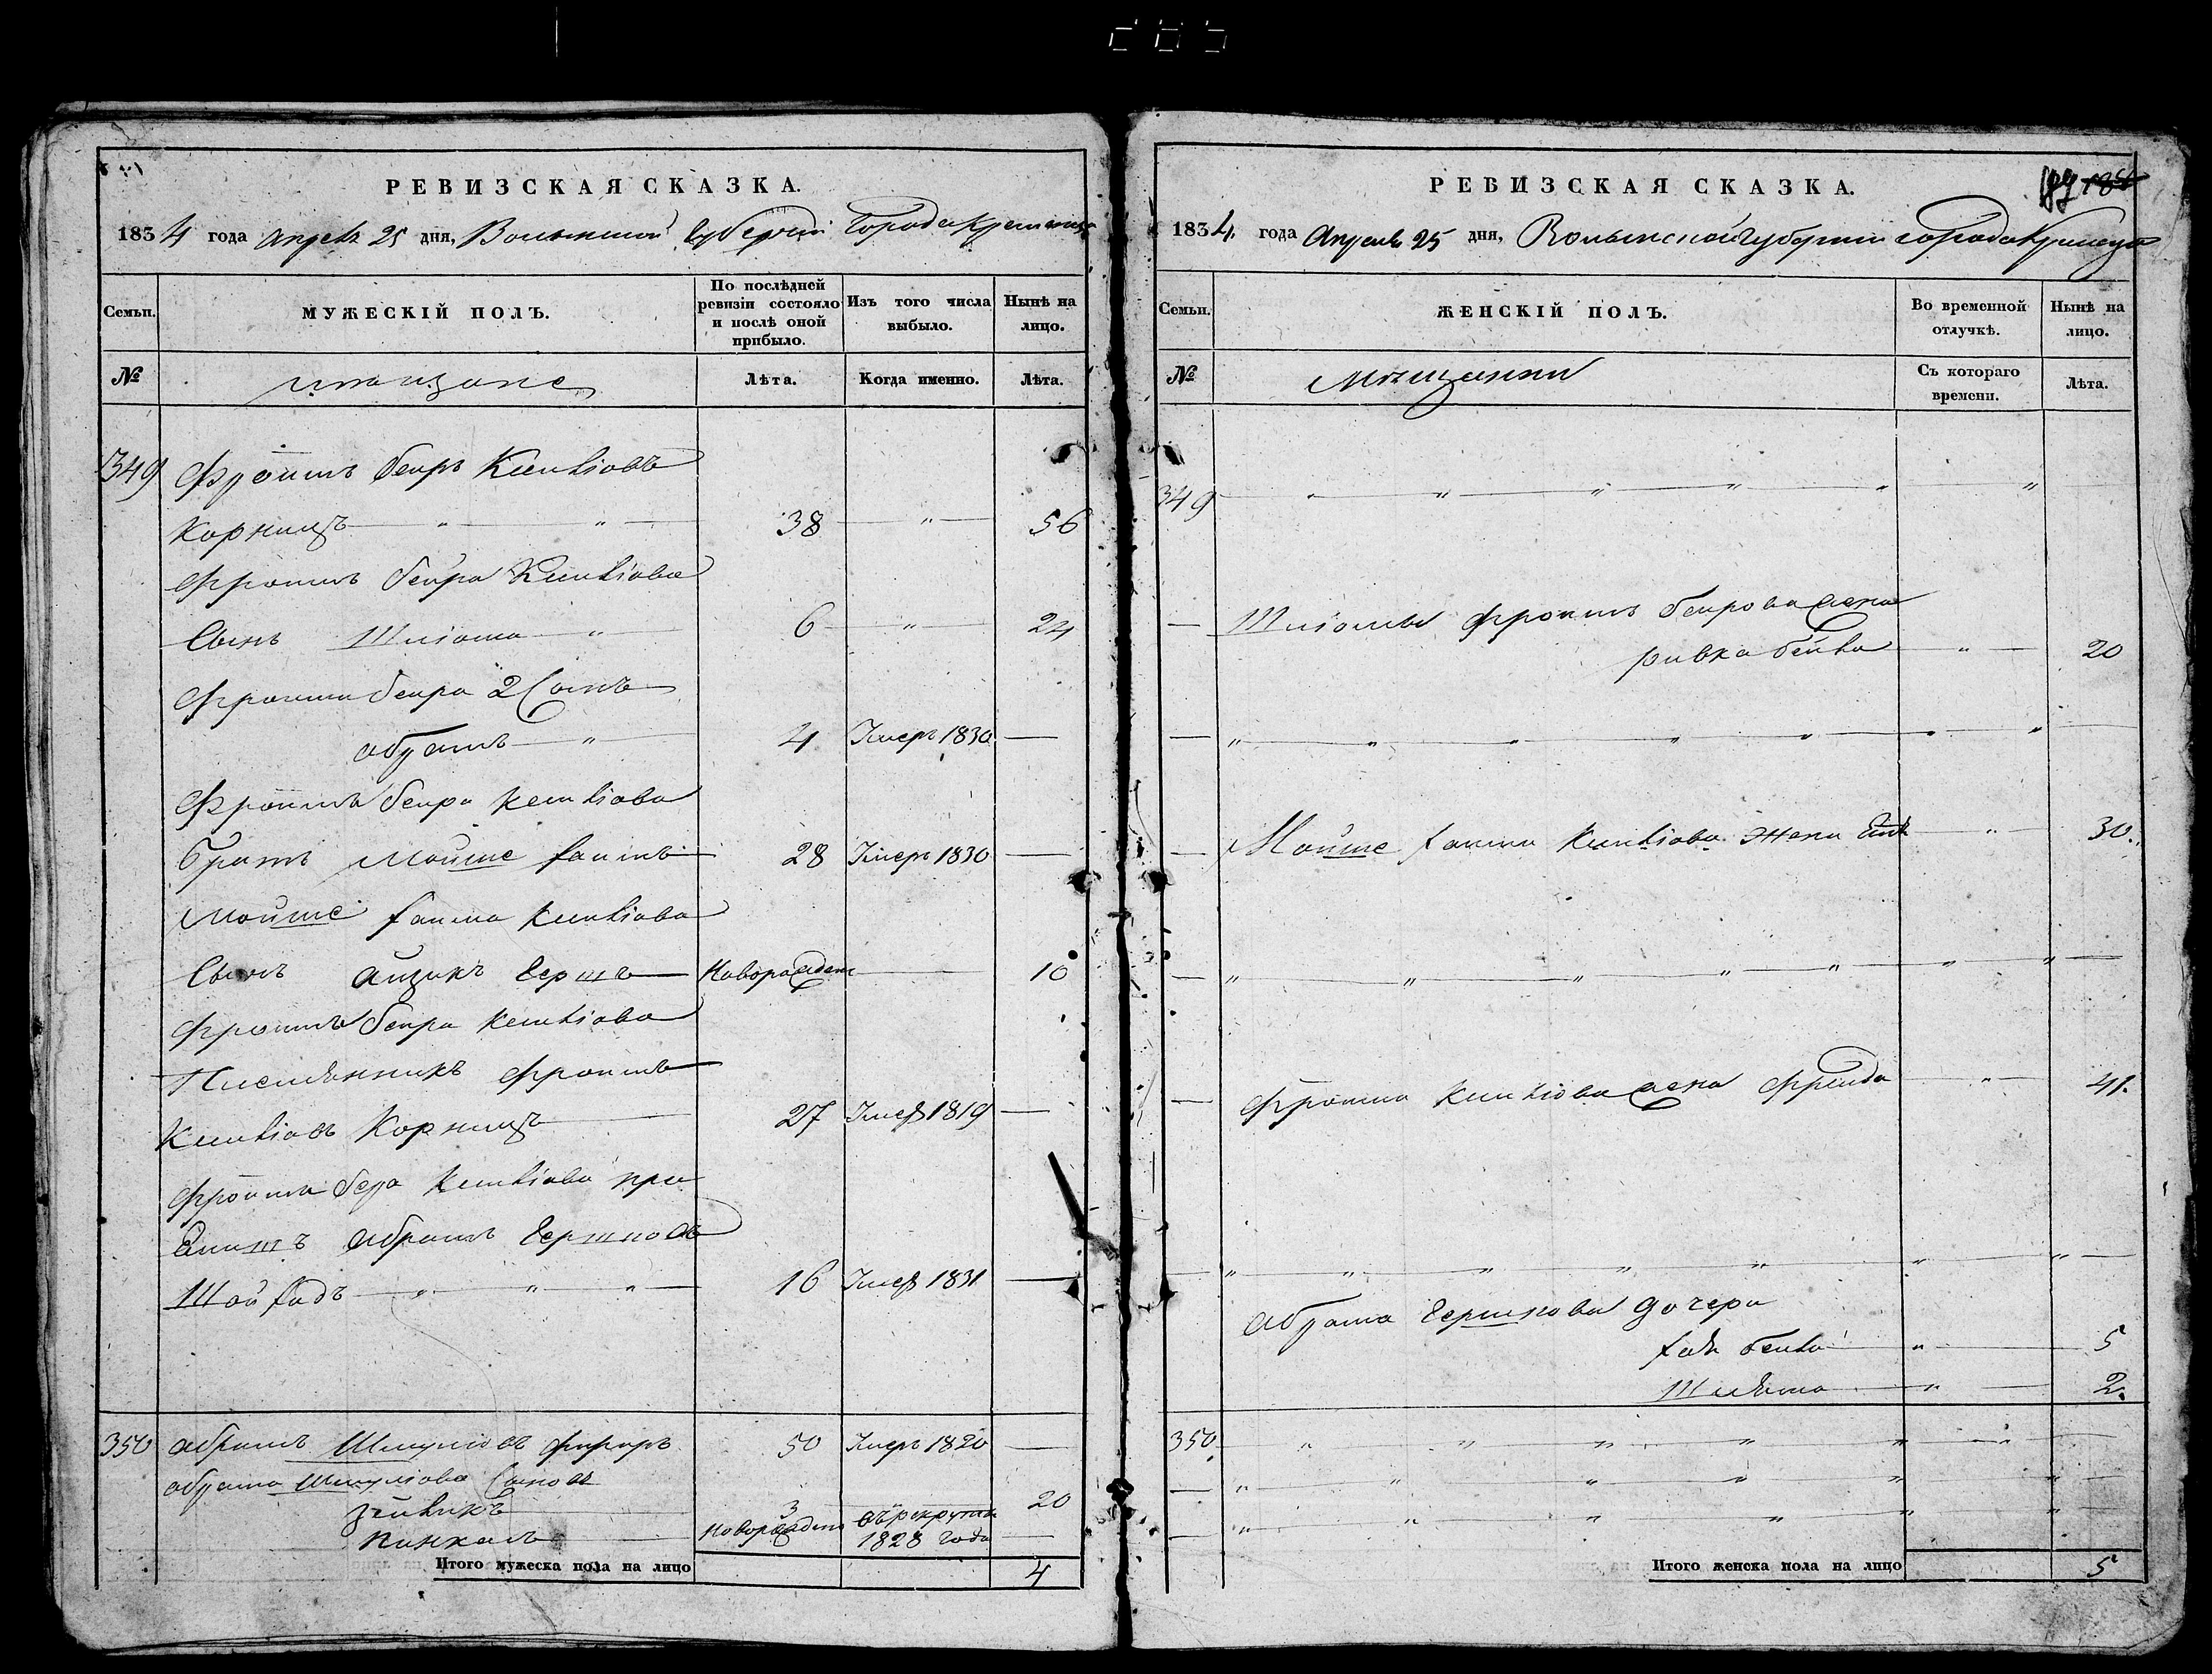 РЕВИЗСКАЯ СКАЗКА.
1834 года Апреля 25 дня, Волынской Губернии Города Кременца
Семьи.
МУЖЕСКІЙ ПОЛЪ.
По послѣдней ревизіи состояло и послѣ оной прибыло.
Изъ того числа выбыло.
Нынѣ на лицо.
№
мѣщане
Лѣта.
Когда именно.
Лѣта.
349 Фроимъ беиръ
Корницъ 38 56
Фроимъ беира
Сынъ Шліома 6 24
Фроима беира 2 Сынъ
абрамъ 4 Умеръ 1830
Фроима беира
братъ Мойше хаимъ 28 Умеръ 1830
Мойше хаима
Сынъ айзикъ Герш Новорожден 10
Фроима беира
Племянникъ Фроимъ
Корницъ 27 Умер 1819
Фроима бера при
абрамъ Гершков
16 Умер 1831
350 абрамъ Шмулiовъ 50 Умеръ 1820
абрама Шмулiова Сыновя
зейликъ 3 20
Пинхасъ Новорожден въ рекруты 1828 года
Итого мужеска пола на лицо 4
РЕВИЗСКАЯ СКАЗКА.
187 184
1834 года Апреля 25 дня, Волынской Губернии города Кременца
Семьи.
ЖЕНСКІЙ ПОЛЪ.
Во временной отлучкѣ.
Нынѣ на лицо.
№
Мѣщанки
Съ котораго времени.
Лѣта.
349
Шліомы Фроимъ беирова жена
ривка бейла 20
Мойше хаима жена 30.
Фроима жена Фрейда 41.
абрама Гершкова дочери
хая бейла 5
2.
350
Итого женска пола на лицо 5